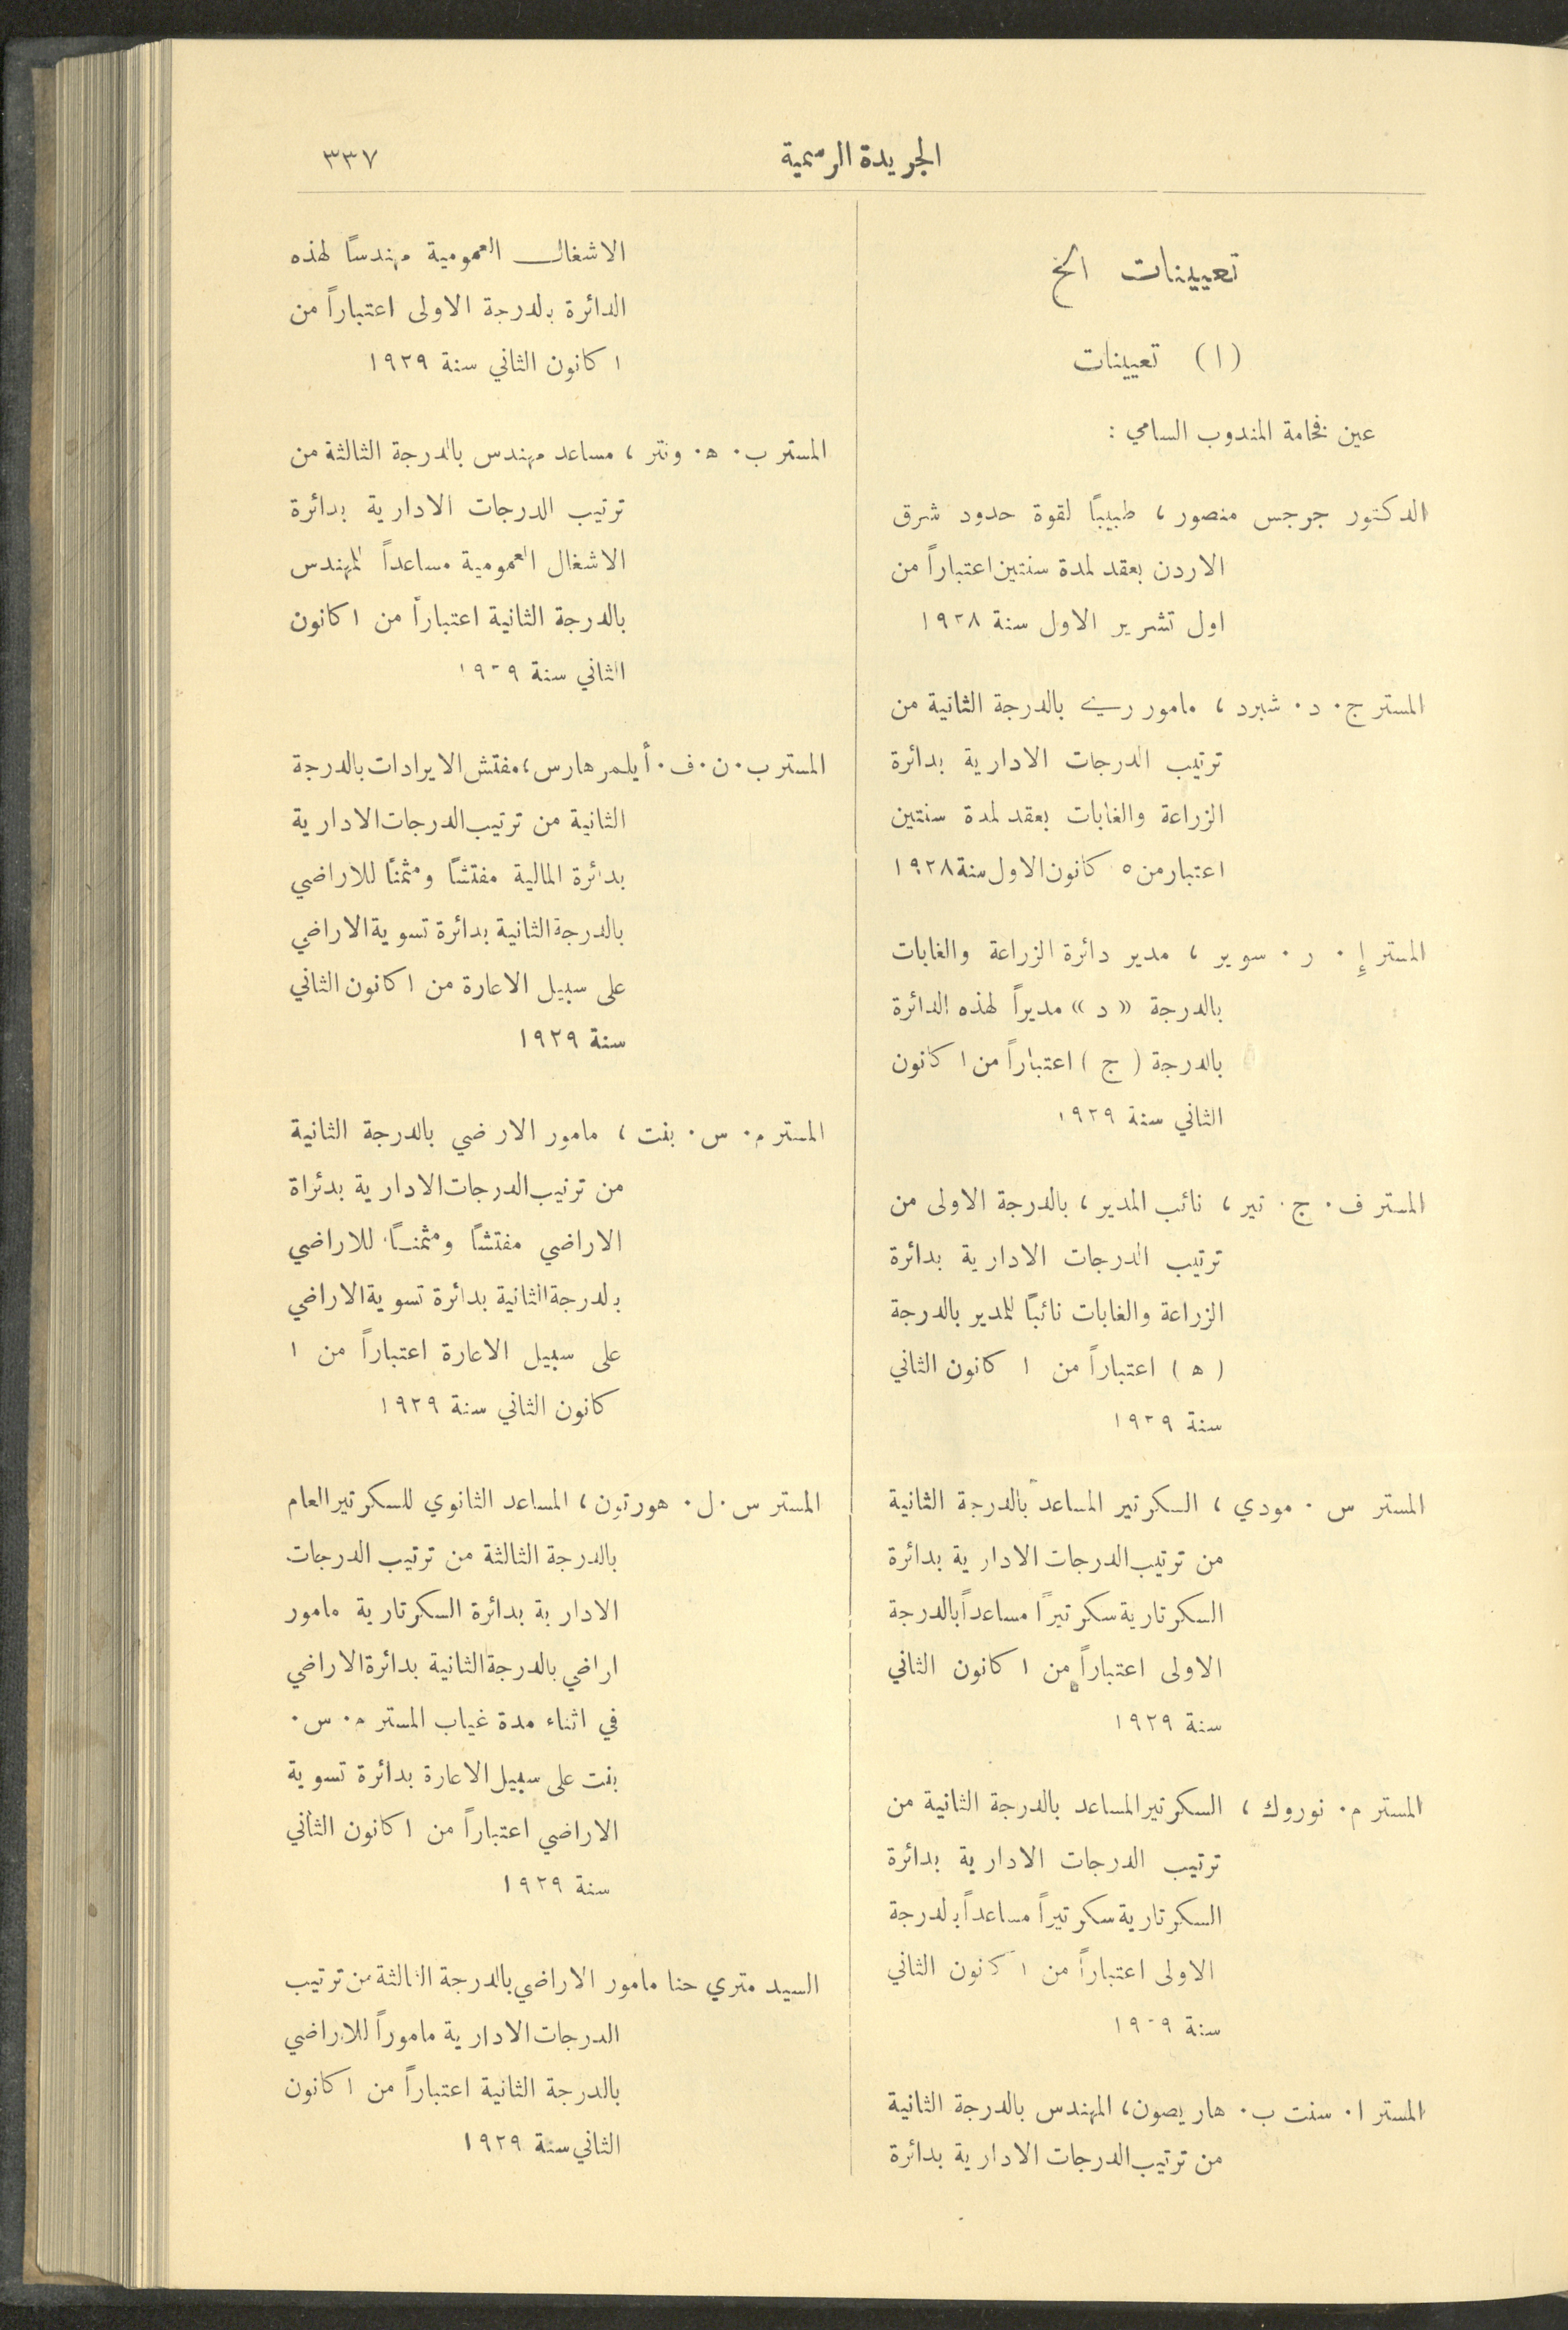 الجريدة الرسمية
٣٣٧
تعيينات الخ
(١) تعيينات
عين فخامة المندوب السامي :
الدكتور جرجس منصور ، طبيبًا لقوة حدود شرق
الاردن بعقد لمدة سنتين اعتباراً من
اول تشرير الاول سنة ١٩٢٨
المستر ج . د . شبرد ، مامور ري بالدرجة الثانية من
ترتيب الدرجات الادارية بدائرة
الزراعة والغابات بعقد لمدة سنتين
اعتبار من ٥ كانون الاول سنة ١٩٢٨
المستر إ . ر . سوير ، مدير دائرة الزراعة والغابات
بالدرجة « د » مديراً لهذه الدائرة
بالدرجة ( ج ) اعتباراً من ١ كانون
الثاني سنة ١٩٢٩
المستر ف . ج . تير ، نائب المدير ، بالدرجة الاولى من
ترتيب الدرجات الادارية بدائرة
الزراعة والغابات نائبًا للمدير بالدرجة
( ه ) اعتباراً من ١ كانون الثاني
سنة ١٩٢٩
المستر س . مودي ، السكرتير المساعد بالدرجة الثانية
من ترتيب الدرجات الادارية بدائرة
السكرتارية سكرتيرًا مساعداً بالدرجة
الاولى اعتباراً من ١ كانون الثاني
سنة ١٩٢٩
المستر م . نوروك ، السكرتير المساعد بالدرجة الثانية من
ترتيب الدرجات الادارية بدائرة
السكرتارية سكرتيراً مساعداً بالدرجة
الاولى اعتباراً من ١ كانون الثاني
سنة ١٩٢٩
المستر ا . سنت ب . هاريصون ، المهندس بالدرجة الثانية
من ترتيب الدرجات الادارية بدائرة
الاشغال العمومية مهندسًا لهذه
الدائرة بالدرجة الاولى اعتباراً من
١ كانون الثاني سنة ١٩٢٩
المستر ب . ه . ونتر ، مساعد مهندس بالدرجة الثالثة من
ترتيب الدرجات الادارية بدائرة
الاشغال العمومية مساعداً للمهندس
بالدرجة الثانية اعتباراً من ١ كانون
الثاني سنة ١٩٢٩
المستر ب . ن . ف . أيلمر هارس ، مفتش الايرادات بالدرجة
الثانية من ترتيب الدرجات الادارية
بدائرة المالية مفتشًا ومثمنًا للاراضي
بالدرجة الثانية بدائرة تسوية الاراضي
على سبيل الاعارة من ١ كانون الثاني
سنة ١٩٢٩
المستر م . س . بنت ، مامور الارضي بالدرجة الثانية
من ترتيب الدرجات الادارية بدئراة
الاراضي مفتشًا ومثمنًا للاراضي
بالدرجة الثانية بدائرة تسوية الاراضي
على سبيل الاعارة اعتباراً من ١
كانون الثاني سنة ١٩٢٩
المستر س . ل . هورتون ، المساعد الثانوي للسكرتير العام
بالدرجة الثالثة من ترتيب الدرجات
الادارية بدائرة السكرتارية مامور
اراضي بالدرجة الثانية بدائرة الاراضي
في اثناء مدة غياب المستر م . س .
بنت على سبيل الاعارة بدائرة تسوية
الاراضي اعتباراً من ١ كانون الثاني
سنة ١٩٢٩
السيد متري حنا مامور الاراضي بالدرجة الثالثة من ترتيب
الدرجات الادارية ماموراً للاراضي
بالدرجة الثانية اعتباراً من ١ كانون
الثاني سنة ١٩٢٩